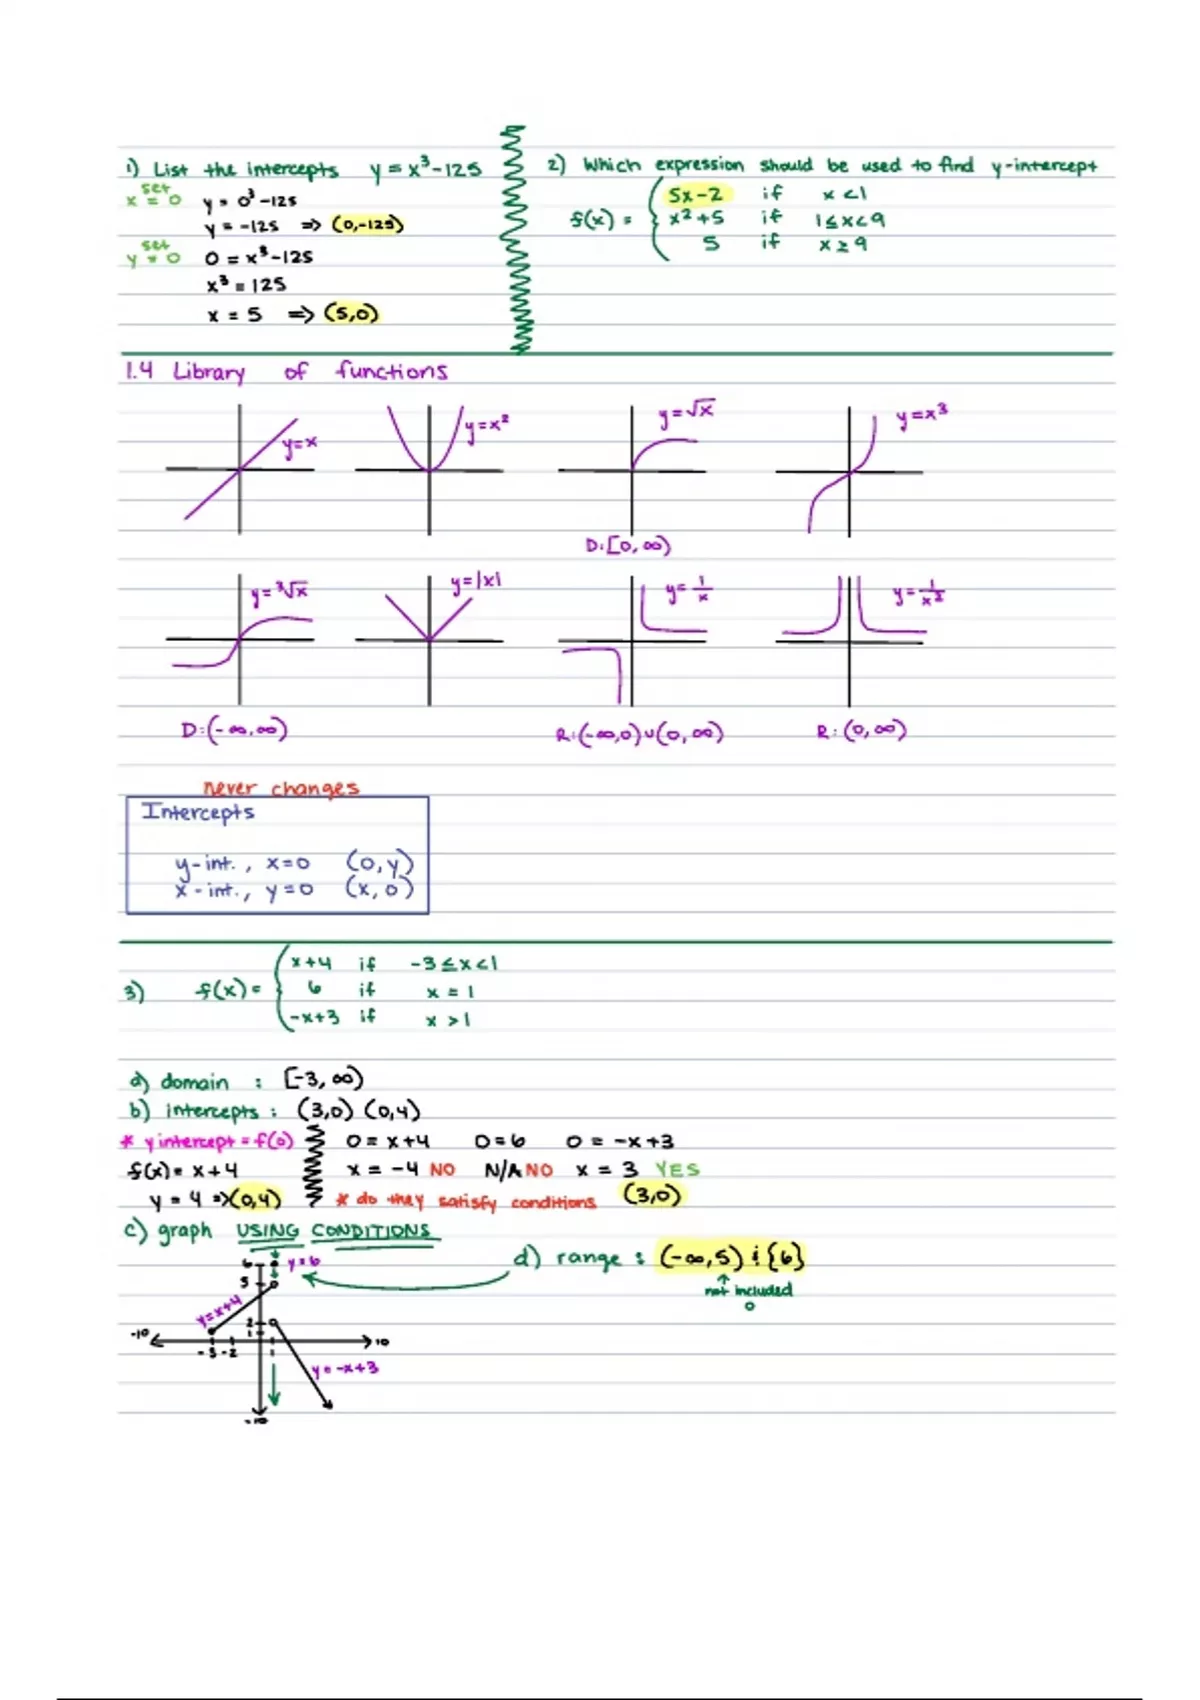 1) List the intercepts y = x³-125
set
x = 0 y = 0³-125
y = -125 => (0,-125)
set
y = 0 0 = x³-125
x³ = 125
x = 5 => (5,0)
2) Which expression should be used to find y-intercept
f(x) = { 5x-2 if x<1
x²+5 if 1≤x<9
5 if x≥9
1.4 Library of functions
y=x
y=x²
y=√x
y=x³
D:[0,∞)
y=³√x
y=|x|
y=1/x
y=1/x²
D:(-∞,∞)
R:(-∞,0)∪(0,∞)
R:(0,∞)
never changes
Intercepts
y-int., x=0 (0,y)
x-int., y=0 (x,0)
3) f(x)= { x+4 if -3≤x<1
6 if x=1
-x+3 if x>1
a) domain : [-3,∞)
b) intercepts : (3,0) (0,4)
* y intercept = f(0)
f(x)= x+4
y = 4 => (0,4)
0 = x+4 0=6 0 = -x+3
x = -4 NO N/A NO x = 3 YES
* do they satisfy conditions (3,0)
c) graph USING CONDITIONS
d) range : (-∞,5) & {6}
↑
not included
o
6 y=6
5
y=x+4
2
1
-10 10
-3 -2 1
y=-x+3
-10